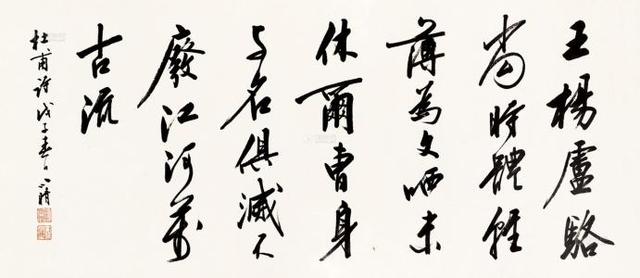 王楊盧駱
當時體輕
薄為文哂未
休爾曹身
与名俱滅不
廢江河萬
古流
杜甫詩戊子春日